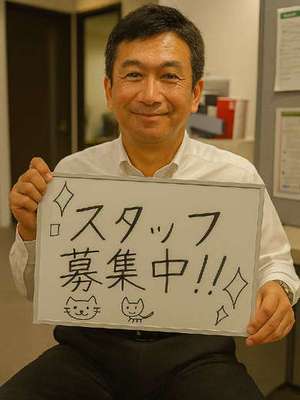 スタッフ
募集中!!